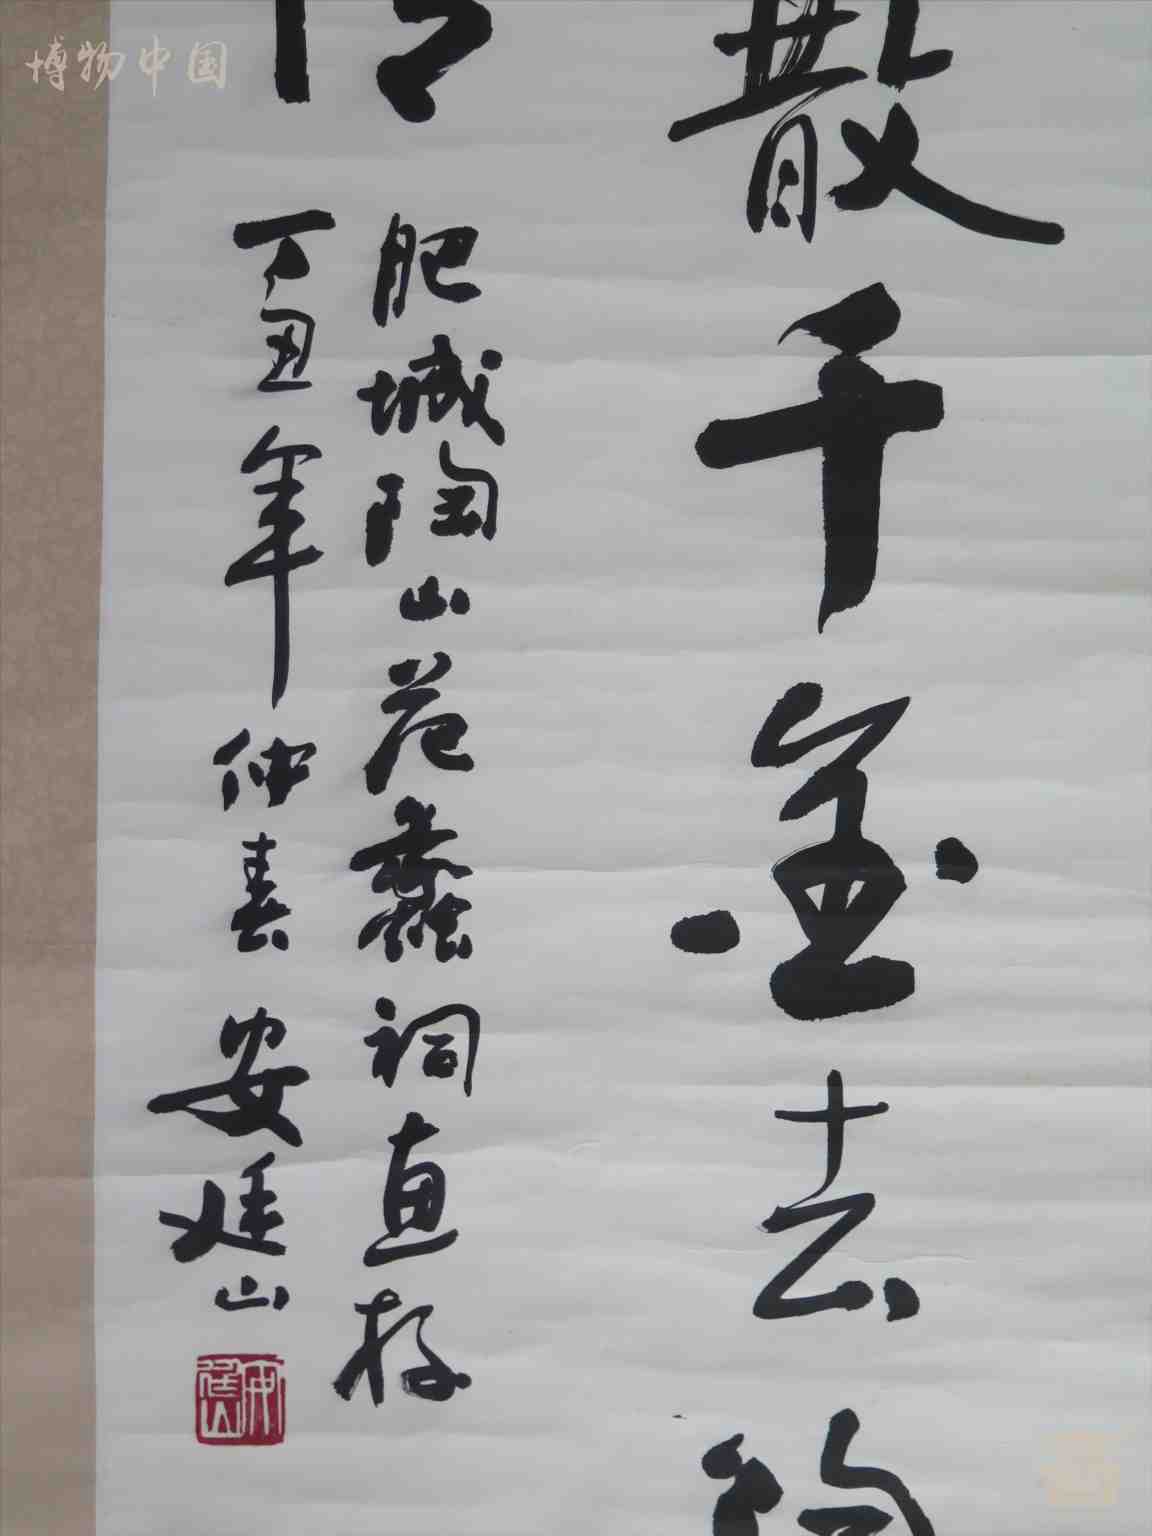 博物中国
散千金去
肥城陶山范蠡祠直存
丁丑年仲春 安廷山
安廷山